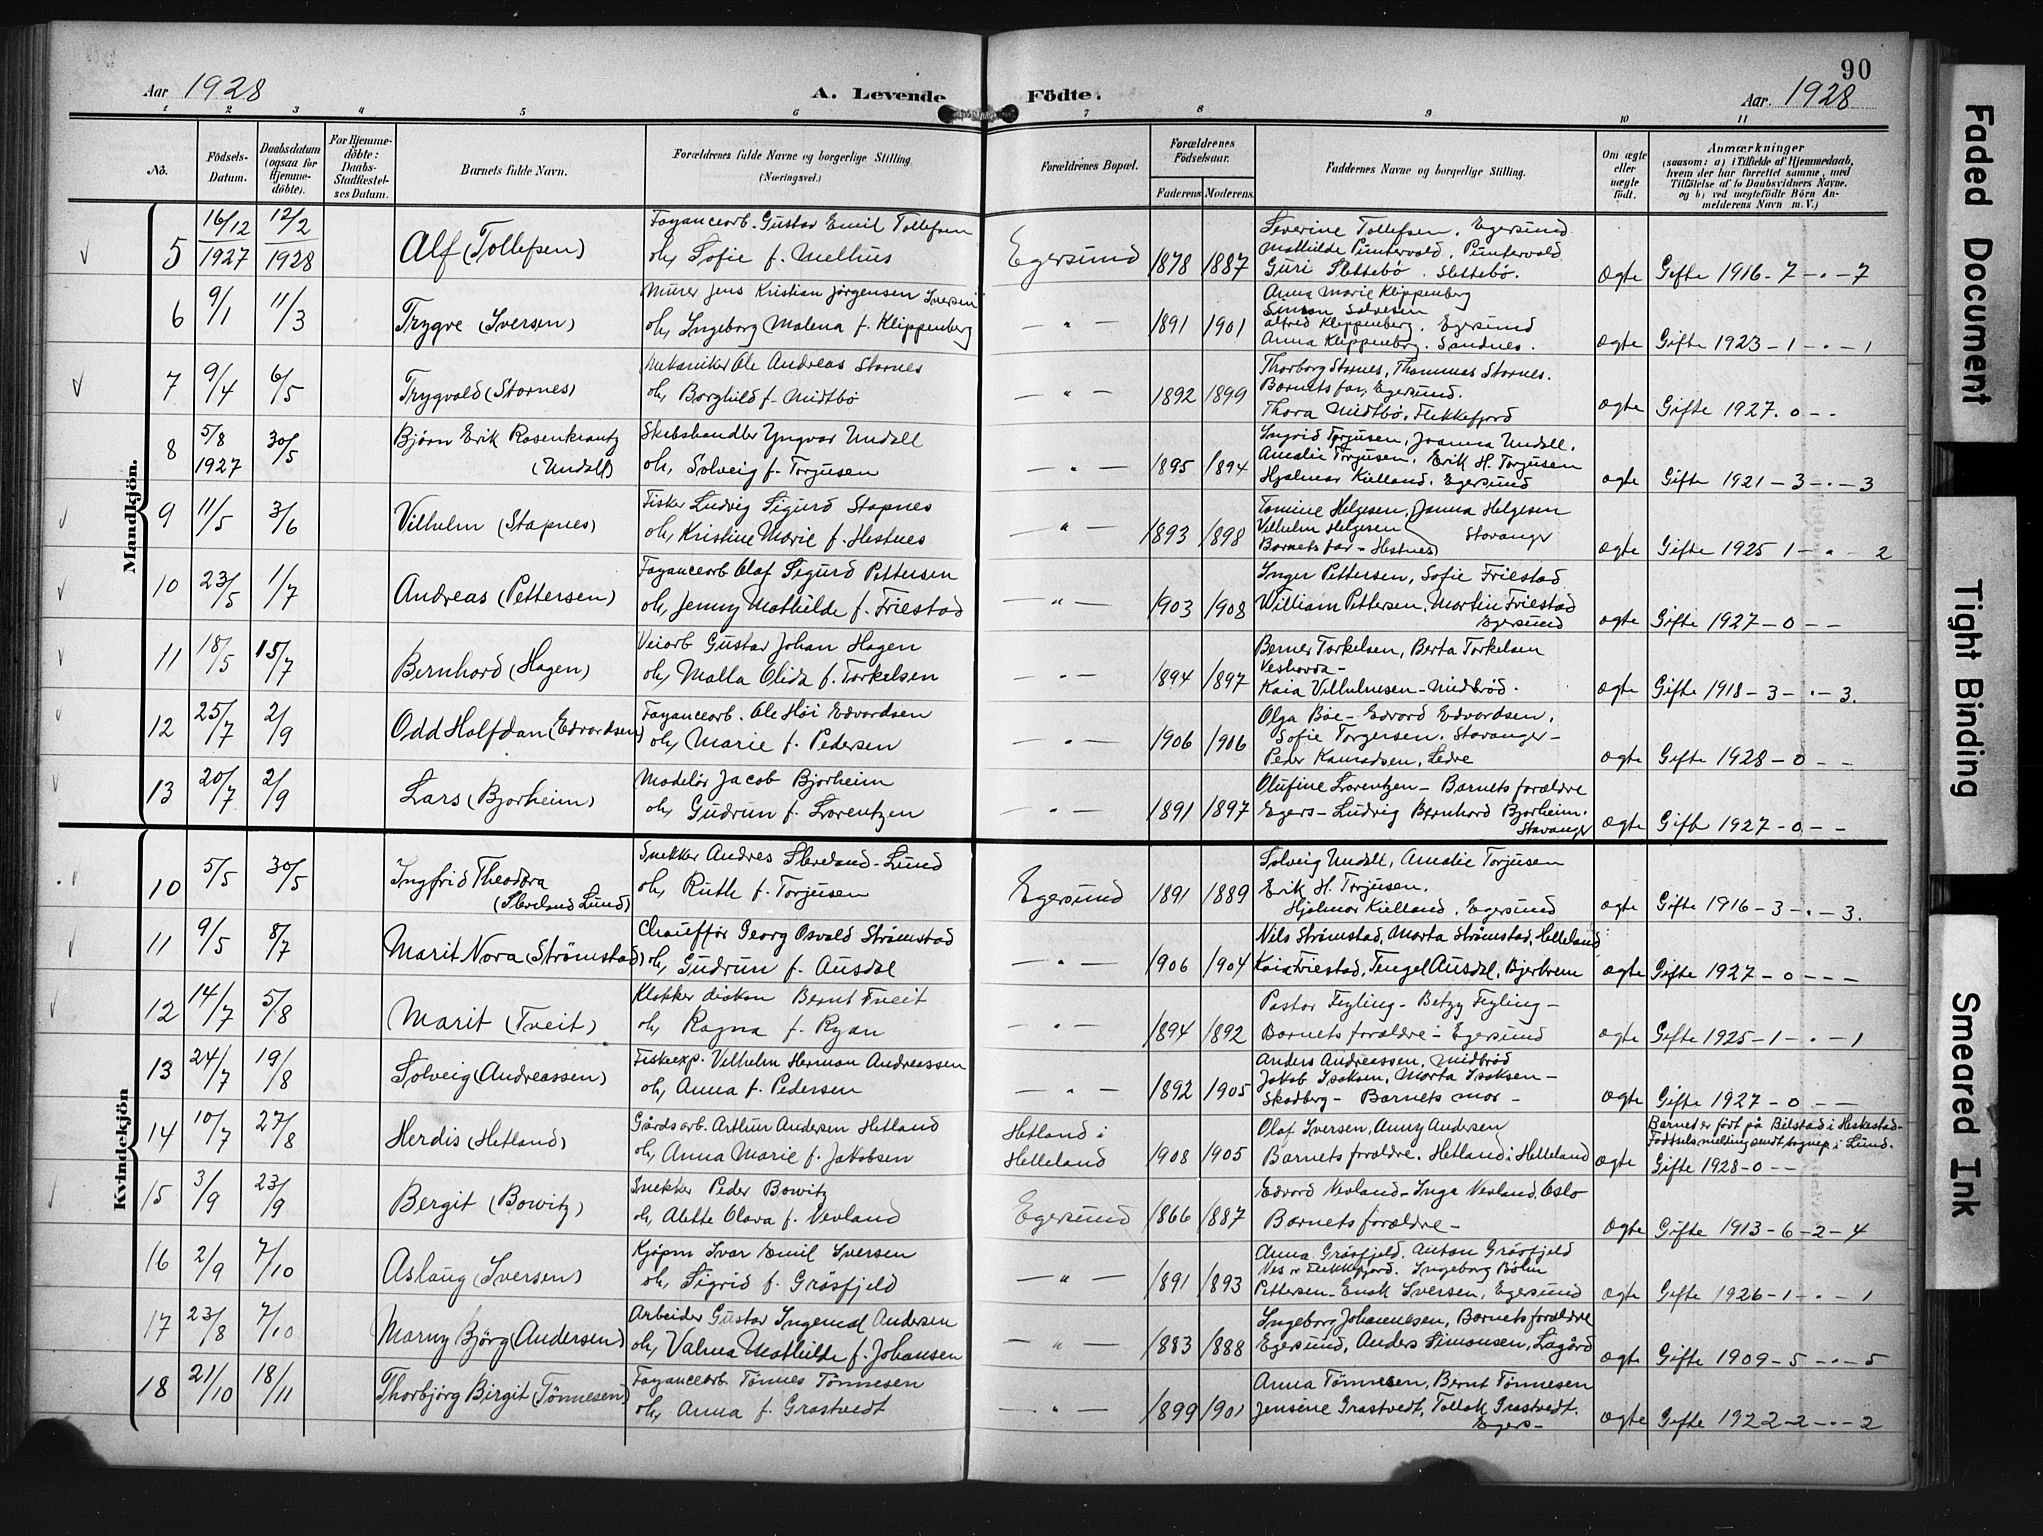 90
Aar 1928
A. Levende
Födte.
Aar. 1928
1 2 3 4 5 6 7 8 9 10 11
No.
Födsels-Datum.
Daabsdatum (ogsaa for Hjemme-döbte).
For Hjemme-döbte: Daabs-Stadfæstel-ses Datum.
Barnets fulde Navn.
Forældrenes fulde Navne og borgerlige Stilling. (Næringsvei.)
Forældrenes Bopæl.
Forældrenes Födselsaar.
Faderens Moderens
Faddernes Navne og borgerlige Stilling.
Om ægte eller uægte födt.
Anmærkninger
(saasom: a) i Tilfælde af Hjemmedaab,
hvem der har forrettet samme, med
Tilföielse af to Daabsvidners Navne,
og b) ved uægtefödte Börn An-
melderens Navn m. V.)
Mandkjön.
5 16/12 1927 12/2 1928 Alf (Tollefsen)
Fayancearb. Gustav Emil Tollefsen
oh, Sofie f. Melhus
Egersund 1878 1887
Severine Tollefsen, Egersund
Mathilde Puntervold, Puntervold
Guri Slettebø. Slettebø.
ægte Gifte 1916-7-"-7
6 9/1 11/3 Trygve (Iversen)
Murer Jens Kristian Jørgensen Iversen
oh, Ingeborg Malena f. Klippenberg
- " - 1891 1901
Anna Marie Klippenberg
Simon Salvesen
Alfred Klippenberg. Egersund
Anna Klippenberg. Sandnes.
ægte Gifte 1923-1-"-1
7 9/4 6/5 Trygvald (Stornes)
Mekaniker Ole Andreas Stornes
oh, Borghild f. Midtbø
- " - 1892 1899
Thorborg Stornes, Thommas Stornes.
Barnets far, Egersund.
Thora Midtbø, Flekkefjord
ægte Gifte 1927. 0 - -
8 5/8 1927 30/5 Bjørn Erik Rosenkrantz
(Undall)
Skibshandler Yngvar Undall
oh, Solveig f. Torjusen
- " - 1895 1894
Ingrid Torjusen, Joanna Undall.
Amalie Torjusen. Erik H. Torjusen
Hjalmar Kielland. Egersund
ægte Gifte 1921-3-"-3
9 11/5 3/6 Vilhelm (Stapnes)
Fisker Ludvig Sigurd Stapnes
oh, Kristine Marie f. Hestnes
- " - 1893 1898
Tomine Helgesen, Janna Helgesen
Vilhelm Helgesen Stavanger
Barnets far - Hestnes
ægte Gifte 1925 1-"-2
10 23/5 1/7 Andreas (Pettersen)
Fayancearb Olaf Sigurd Pettersen
oh, Jenny Mathilde f. Friestad
- " - 1903 1908
Inger Pettersen, Sofie Friestad
William Pettersen, Martin Friestad
Egersund
ægte Gifte 1927-0 - -
11 18/5 15/7 Bernhard (Hagen)
Veiarb Gustav Johan Hagen
oh, Malla Olida f. Torkelsen
- " - 1894 1897
Berner Torkelsen, Berta Torkelsen
Veshovda-
Kaia Vilhelmsen-Midbrød.
ægte Gifte 1918-3-"-3.
12 25/7 2/9 Odd Halfdan (Edvardsen)
Fayancearb. Ole Høi Edvardsen
oh, Marie f. Pedersen
- " - 1906 1906
Olga Bøe- Edvard Edvardsen.
Sofie Torgersen. Stavanger-
Peder Konradsen, Ledre
ægte Gifte 1928-0 - -
13 20/7 2/9 Lars (Bjorheim)
Modelør Jacob Bjorheim
oh, Gudrun f. Lorentzen
- " - 1891 1897
Olufine Lorentzen - Barnets forældre
Egers- Ludvig Bernhard Bjorheim.
Stavanger
ægte Gift 1927-0 - -
Kvindekjön
10 5/5 30/5 Ingfrid Theodora
(Sleveland Lund)
Snekker Andres Sleveland-Lund
oh, Ruth f. Torjusen
Egersund 1891 1889
Solveig Undall, Amalie Torjusen
Erik H. Torjusen.
Hjalmar Kielland, Egersund
ægte Gifte 1916-3-"-3.
11 9/5 8/7 Marit Nora (Strømstad)
Chauffør Georg Osvald Strømstad
oh, Gudrun f. Ausdal
- " - 1906 1904
Nils Strømstad, Marta Strømstad, Helleland
Kaia Friestad, Tengel Ausdal, Bjerkreim
ægte Gifte 1927-0 - - -
12 14/7 5/8 Marit (Tveit)
Klokker diakon Bernt Tveit
oh, Ragna f. Ryan
- " - 1894 1892
Pastor Feyling- Betzy Feyling-
Barnets forældre - Egersund
ægte Gifte 1925-1-"-1
13 24/7 19/8 Solveig (Andreassen)
Fiskeexp. Vilhelm Herman Andreassen
oh, Anna f. Pedersen
- " - 1892 1905
Anders Andreassen, Midbrød
Jakob Isaksen, Marta Isaksen-
Skadberg - Barnets mor -
ægte Gifte 1927-0 - -
14 10/7 27/8 Herdis (Hetland)
Gårdsarb. Arthur Andersen Hetland
oh, Anna Marie f. Jakobsen
Hetland i
Helleland
1908 1905
Olaf Iversen, Anny Andersen
Barnets forældre. Hetland i Helleland
ægte
Barnet er født på Bilstad i Heskestad-
Fødselsmelding sendt sognep. i Lund.
Gifte 1928-0 - -
15 3/9 23/9 Bergit (Bowitz)
Snekker Peder Bowitz
oh, Alette Olava f. Nevland
Egersund 1866 1887
Edvard Nevland- Inga Nevland, Oslo
Barnets forældre -
ægte Gifte 1913-6-2-4
16 2/9 7/10 Aslaug (Iversen)
Kjøpm Ivar Emil Iversen
oh, Sigrid f. Gråsfjeld
- " - 1891 1893
Anna Gråsfjeld. Anton Gråsfjeld
Flekkefjord. Ingeborg Bøhn
Pettersen- Enok Iversen, Egersund
ægte Gifte 1926-1-"-1
17 23/8 7/10 Marny Bjørg (Andersen)
Arbeider Gustav Ingemal Andersen
oh, Valma Mathilde f. Johansen
- " - 1883 1888
Ingeborg Johannesen, Barnets forældre
Egersund, Anders Simonsen, Lagård
ægte Gifte 1909-5-"-5
18 21/10 18/11 Thorbjørg Birgit (Tønnesen)
Fayancearb. Tønnes Tønnesen
oh, Anna f. Grastvedt
- " - 1899 1901
Anna Tønnesen, Bernt Tønnesen
Jensine Grastvedt, Tollak Grastvedt.
Egers-
ægte Gifte 1922-2-"-2
Faded Document
Tight Binding
Smeared Ink